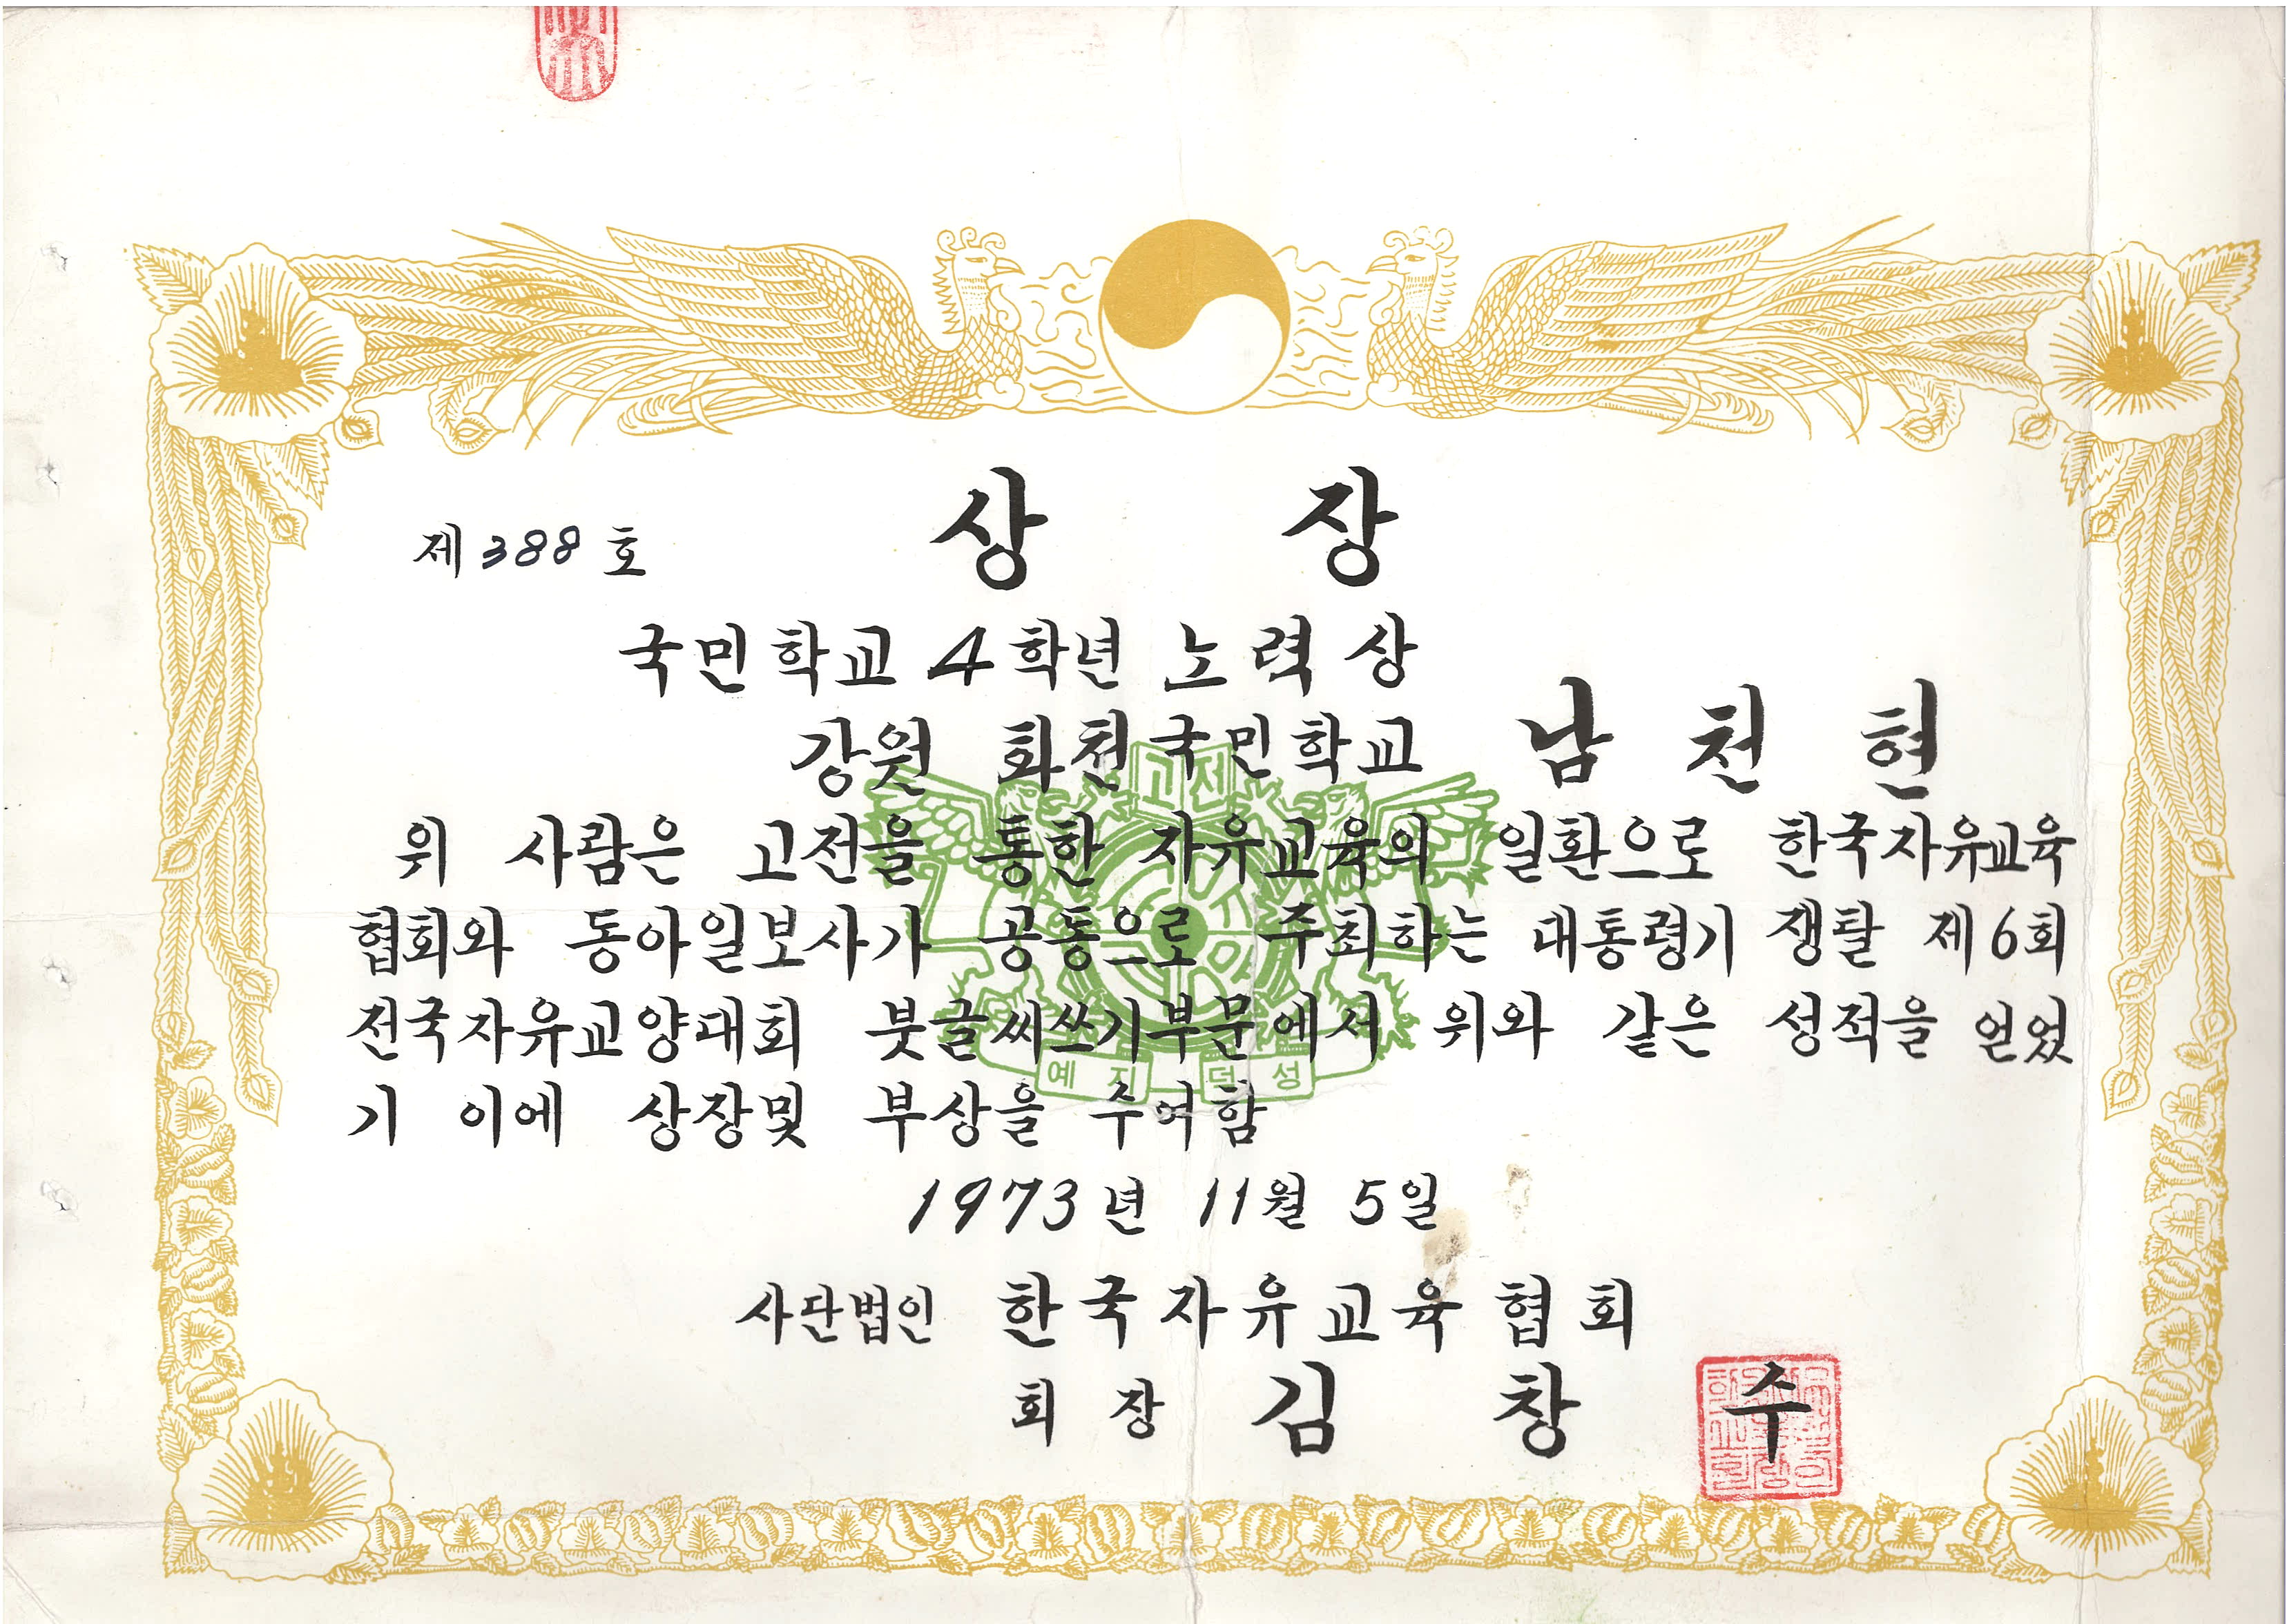 상 장
제 388 호
국민학교 4학년 노력상
강원 화천국민학교 남천현
위 사람은 고전을 통한 자유교육의 일환으로 한국자유교육
협회와 동아일보사가 공동으로 주최하는 대통령기 쟁탈 제6회
전국자유교양대회 붓글씨쓰기부문에서 위와 같은 성적을 얻었
기 이에 상장및 부상을 수여함
1973년 11월 5일
사단법인 한국자유교육협회
회장 김창수
고전
예지 덕성